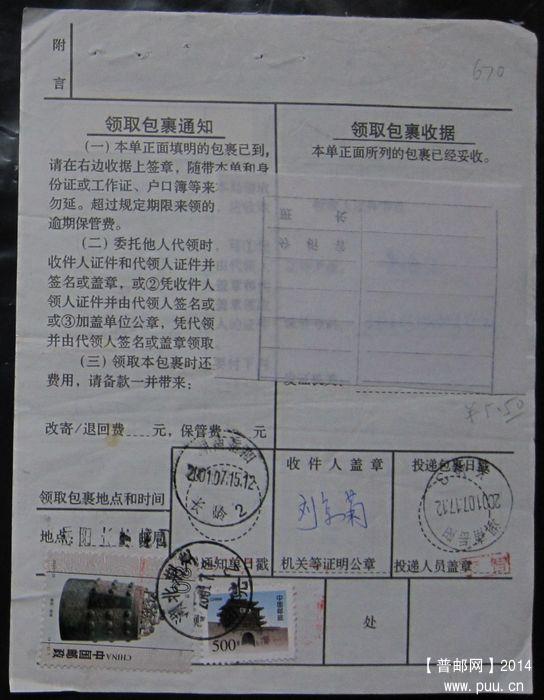 附
言
670
领取包裹通知
(一) 本单正面填明的包裹已到,
请在右边收据上签章, 随带本单和身
份证或工作证、户口簿等来
勿延。超过规定期限来领的
逾期保管费。
(二) 委托他人代领时,
收件人证件和代领人证件并
签名或盖章, 或②凭收件人
领人证件并由代领人签名或
或③加盖单位公章, 凭代领
并由代领人签名或盖章领取
(三) 领取本包裹时还
费用, 请备款一并带来:
改寄/退回费 元, 保管费 元
领取包裹收据
本单正面所列的包裹已经妥收。
领取包裹地点和时间
地点
2001.07.15.12
长岭 2
通知日戳
收件人盖章
机关等证明公章
投递包裹日戳
2001.07.17.12
投递人员盖章
中国邮政 CHINA
中国邮政
500分
处
【普邮网】2014
www.puu.cn